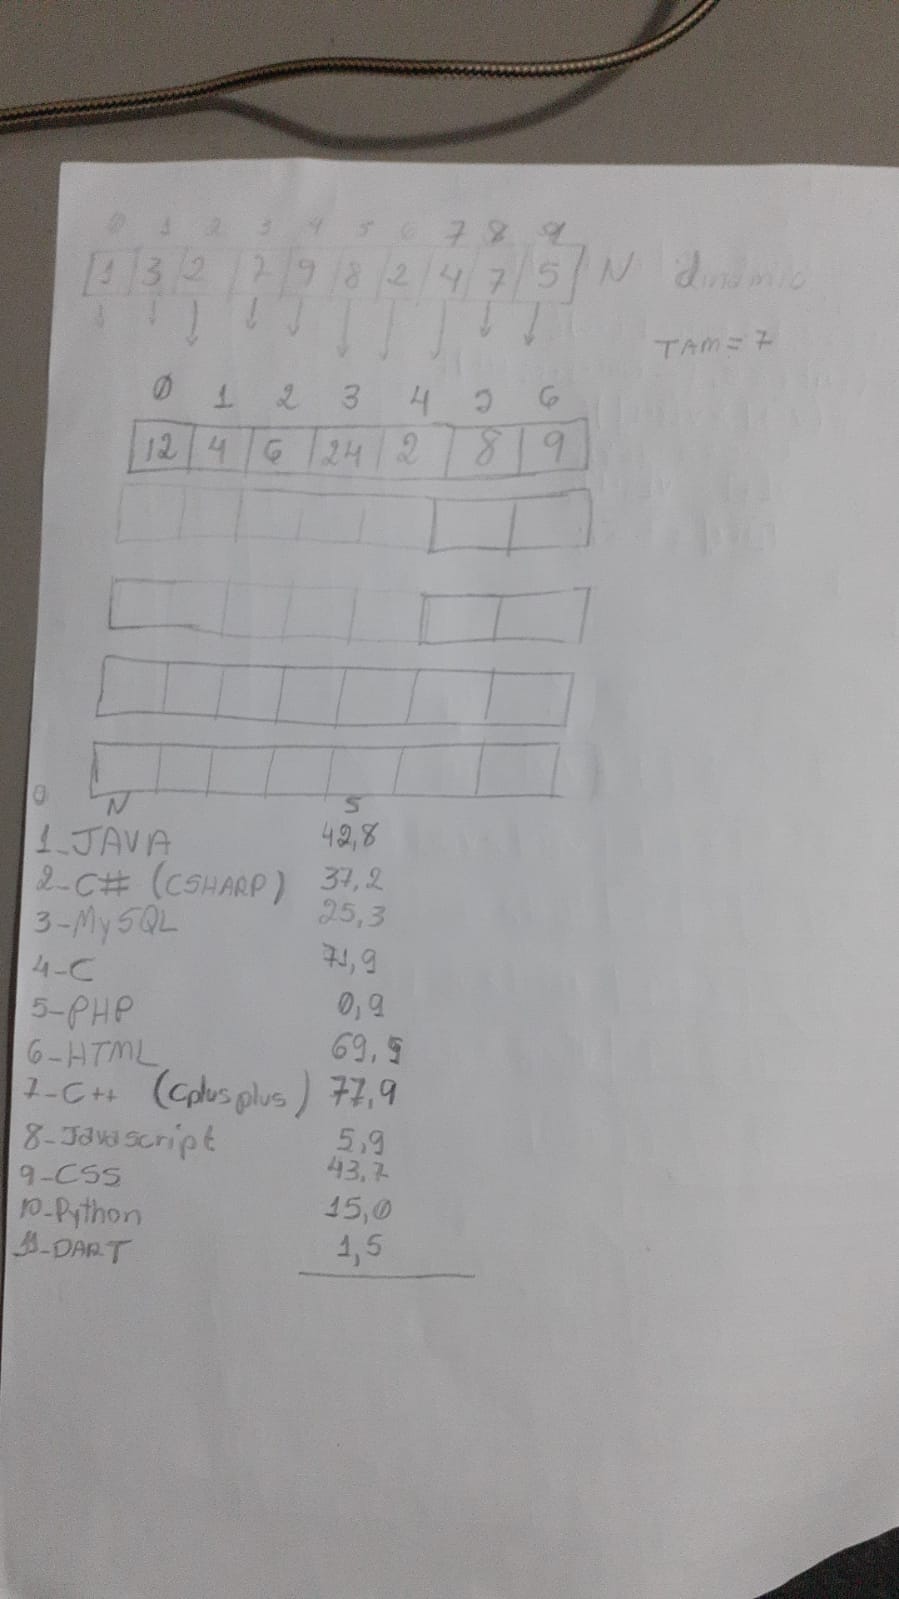 0 1 2 3 4 5 6 7 8 9
1 3 2 7 9 8 2 4 7 5 N dinamic
TAM = 7
0 1 2 3 4 5 6
12 4 6 24 2 8 9
0
N S
1-JAVA 42,8
2-C# (CSHARP) 37,2
3-MySQL 25,3
4-C 71,9
5-PHP 0,9
6-HTML 69,5
7-C++ (Cplusplus) 77,9
8-Javascript 5,9
9-CSS 43,7
10-Python 15,0
11-DART 1,5